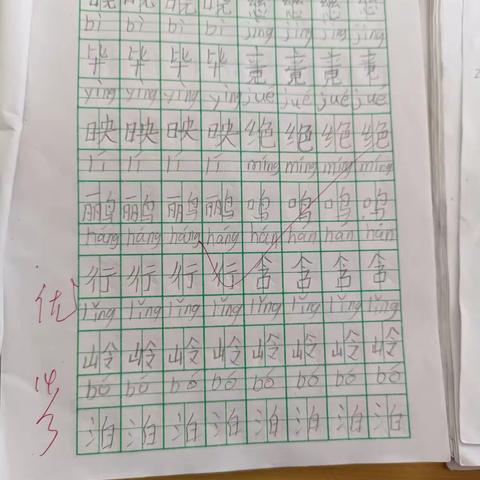 bì bì bì bì jìng jìng jìng jìng
毕 毕 毕 毕 竟 竟 竟 竟
yìng yìng yìng yìng jué jué jué jué
映 映 映 映 绝 绝 绝 绝
lí lí lí lí míng míng míng míng
鹂 鹂 鹂 鹂 鸣 鸣 鸣 鸣
háng háng háng háng hán hán hán hán
行 行 行 行 含 含 含 含
优
lǐng lǐng lǐng lǐng lǐng lǐng lǐng lǐng
岭 岭 岭 岭 岭 岭 岭 岭
bó bó bó bó bó bó bó bó
泊 泊 泊 泊 泊 泊 泊 泊